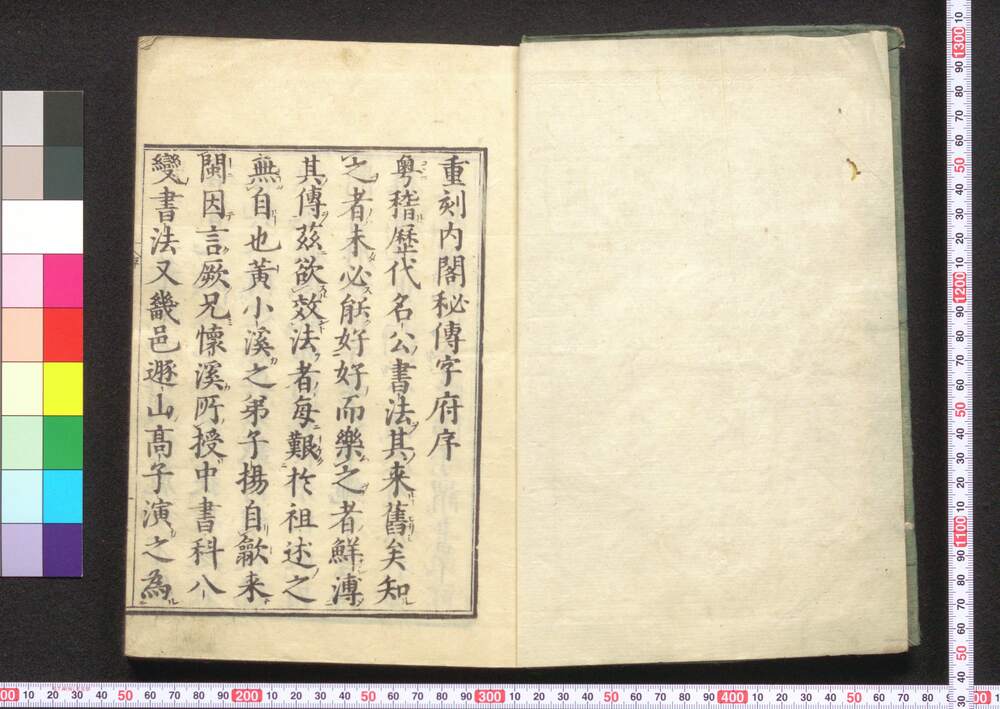 重刻内閣秘傳字府序
粤稽歴代名公書法其来舊矣知
之者未必能好好而樂之者鮮溥
其傳茲欲效法者每艱於祖述之
無自也黃小溪之弟子揚自歙来
閩因言厥兄懷溪所授中書科八
變書法又畿邑遯山高子演之為